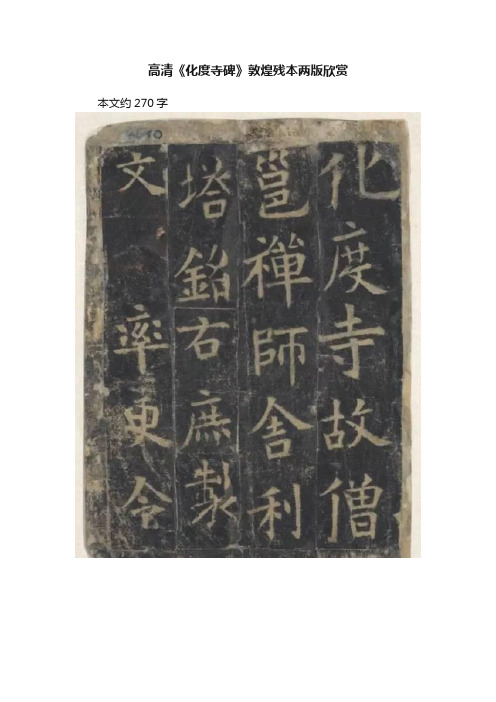 高清《化度寺碑》敦煌残本两版欣赏
本文约270字
化度寺故僧
邕禪師舍利
塔銘右庶製
文 率更令